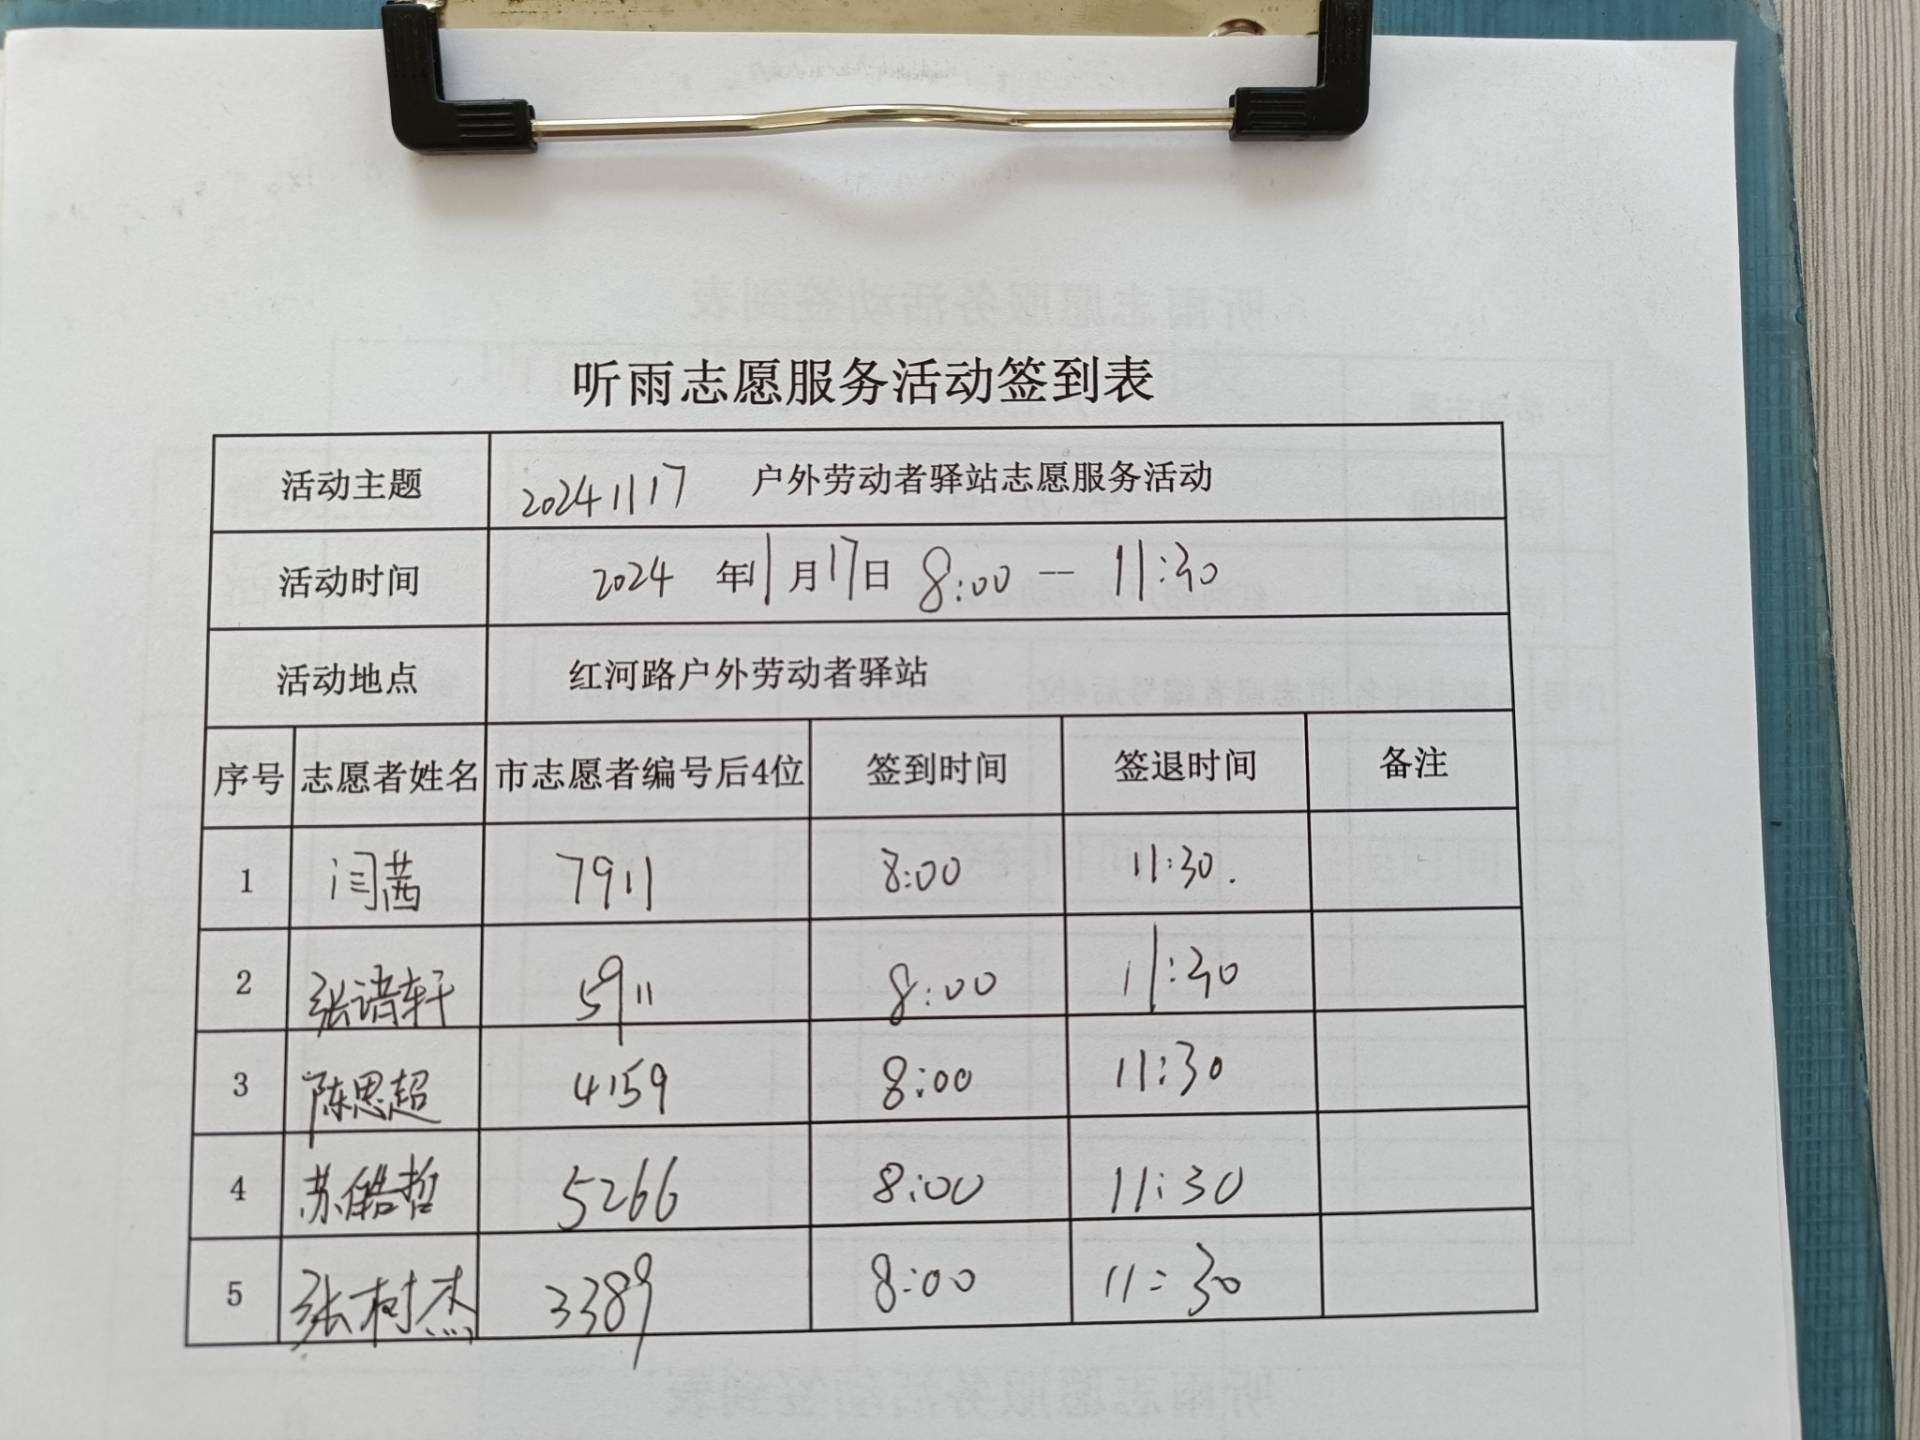 听雨志愿服务活动签到表
活动主题 20241117 户外劳动者驿站志愿服务活动
活动时间 2024 年11月17日 8:00 -- 11:30
活动地点 红河路户外劳动者驿站
序号 志愿者姓名 市志愿者编号后4位 签到时间 签退时间 备注
1 闫茜 7911 8:00 11:30.
2 张诸轩 5911 8:00 11:30
3 陈思超 4159 8:00 11:30
4 苏皓哲 5266 8:00 11:30
5 张树杰 3389 8:00 11:30